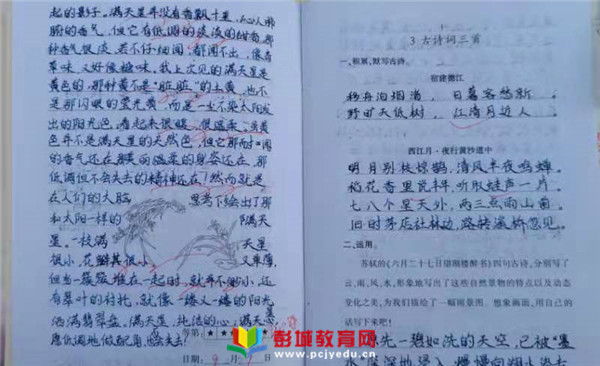 起的影子。满天星并没有香飘十里，沁人心
脾的香气，但它有低调的淡淡的甜香，那
种香气很淡，若不仔细闻，都闻不出，像青
草味，又好像糖味。我上次见的满天星是
黄色的，那种黄不是“脏脏”的土黄，也不
是那闪眼的荧光黄，而是一尘不染太阳发
出的阳光色，看起来很暖，很温柔，这黄
色并不是满天星的天然色，但它那时
的香气还在，温柔的身姿还在，那
低调但不会失去的精神还在！然而就是
在人们的大脑
里笔下绘出了那
和太阳一样的
满天
星。一枝满
天星
很小，花瓣其很小
又单薄，
但当一簇簇堆在一起时，就并不渺小，还
有翠叶的衬托，就像一缕又一缕的阳光
洒满翡翠盘。满天星，纯洁的心；满天星，
愿低调地做配角，
等第：
日期： 月 日
3 古诗词三首
一、积累，默写古诗。
宿建德江
移舟泊烟渚，日暮客愁新。
野旷天低树，江清月近人。
西江月·夜行黄沙道中
明月别枝惊鹊，清风半夜鸣蝉。
稻花香里说丰年，听取蛙声一片。
七八个星天外，两三点雨山前。
旧时茅店社林边，路转溪桥忽见。
二、运用。
苏轼的《六月二十七日望湖楼醉书》四句古诗，分别写了
云、雨、风、水，形象地写出了这些自然景物的特点以及动态
变化之美，为我们描绘了一幅雨景图。想象画面，用自己的
话写下来吧！
原先一碧如洗的天空，已被“墨
彭城教育网
www.pcjyedu.cn